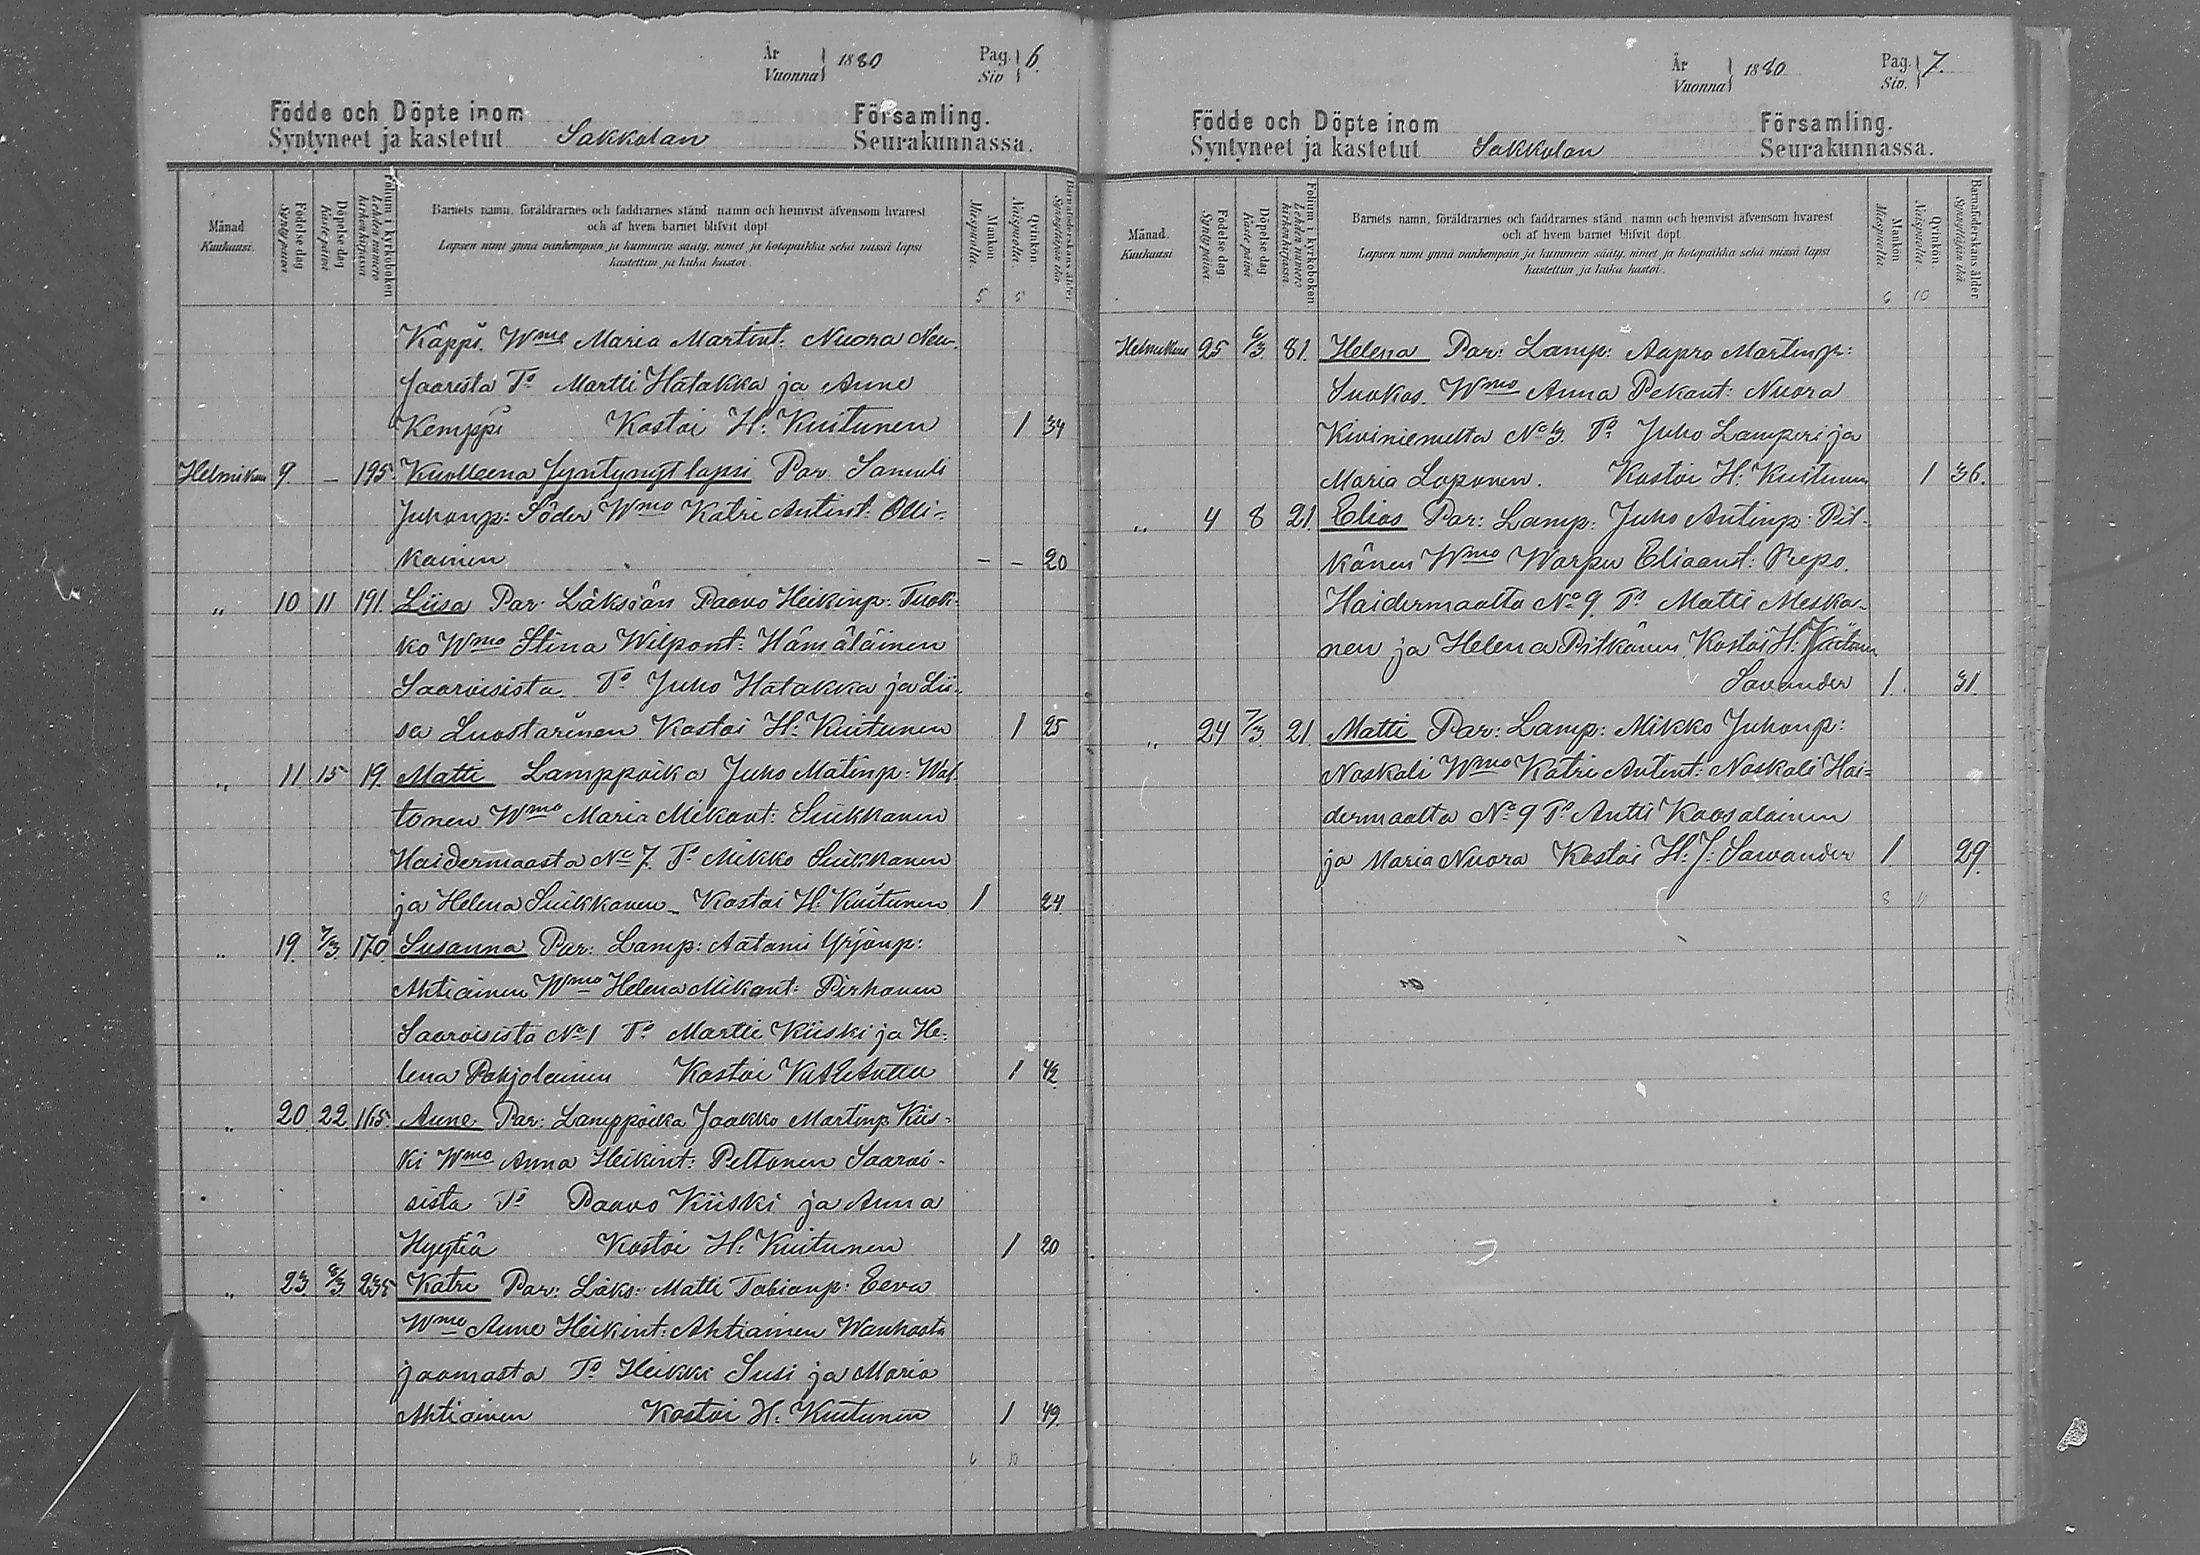 År Vuonna 1880 Pag. Siv. 6.
Födde och Döpte inom Församling.
Syntyneet ja kastetut Sakkolan Seurakunnassa.
Månad Kuukausi.
Födelse dag Syntypäivä
Döpelse dag Kastepäivä
Folium i kyrkoboken Lehden numero kirkonkirjassa
Barnets namn, föräldrarnes och faddrarnes stånd namn och hemvist äfvensom hvarest
och af hvem barnet blifvit döpt
Lapsen nimi ynnä vanhempain ja kummein sääty, nimet ja kotopaikka sekä missä lapsi
kastettiin ja kuka kastoi.
Mankön Miespuolia.
Qvinkön. Naispuolia.
Barnaföderskans ålder Synnyttäjän ikä
5 5
Käppi. Wmo Maria Martint: Nuora Neu-
Jaarista To Martti Hatakka ja Anne
Kemppi Kastoi H: Kuitunen 1 34
Helmikuu 9 – 195. Kuolleena syntynyt lapsi Par. Samuli
Juhonp: Söder Wmo Katri Antint: Olli-
kainen – – 20
„ 10 11 191. Liisa Par. Läksiän Paavo Heikinp: Tuok-
ko Wmo Stina Wilpont: Hämäläinen
Saaroisista To Juho Hatakka ja Lii-
sa Luostarinen Kastoi H: Kuitunen 1 25
„ 11. 15 19. Matti Lamppoika Juho Matinp: Wal-
tonen Wmo Maria Mikont: Suikkanen
Haidermaasta No 7. To Mikko Suikkanen
ja Helena Suikkanen – Kastoi H: Kuitunen 1 24
„ 19. 7/3. 170. Susanna Par: Lamp: Aatami Yrjönp:
Ahtiainen Wmo Helena Mikont: Pirhonen
Saaroisista No 1 To Martti Kiiski ja He-
lena Pohjolainen Kastoi 1 42.
„ 20 22. 165. Anne Par: Lamppoika Jaakko Martinp Kiis-
ki Wmo Anna Heikint: Peltonen Saaroi-
sista To Paavo Kiiski ja Anna
Hyytiä Kastoi H: Kuitunen 1 20
„ 23 8/3 235 Katri Par: Läks: Matti Tobianp: Eeva
Wmo Anne Heikint: Ahtiainen Wanhasta
jaamasta To Heikki Susi ja Maria
Ahtiainen Kastoi H: Kuitunen 1 49.
6 10
År Vuonna 1880 Pag. Siv. 7.
Födde och Döpte inom Församling.
Syntyneet ja kastetut Sakkolan Seurakunnassa.
Månad. Kuukausi
Födelse dag Syntypäivä
Döpelse dag Kastepäivä
Folium i kyrkoboken Lehden numero kirkonkirjassa
Barnets namn, föräldrarnes och faddrarnes stånd namn och hemvist äfvensom hvarest
och af hvem barnet blifvit döpt.
Lapsen nimi ynnä vanhempain ja kummein sääty, nimet ja kotopaikka sekä missä lapsi
kastettiin ja kuka kastoi.
Mankön Miespuolia.
Qvinkön. Naispuolia.
Barnaföderskans ålder Synnyttäjän ikä
6 10
Helmikuu 25 6/3. 81. Helena Par: Lamp: Aapro Martinp:
Suokas. Wmo Anna Pekant: Nuora
Kiviniemeltä No 3. To Juho Lamperi ja
Maria Loponen. Kastoi H: Kuitunen 1 36.
„ 4 8 21. Elias Par: Lamp: Juho Antinp: Pit-
känen Wmo Warpu Eliaant: Repo.
Haidermaalta No 9. To Matti Meska-
nen ja Helena Pitkänen. Kastoi H: Kuitunen
Savander 1. 31.
„ 24 7/3. 21. Matti Par: Lamp: Mikko Juhonp:
Naskali Wmo Katri Antint: Naskali Hai-
dermaalta No 9 To Antti Kaasalainen
ja Maria Nuora Kastoi H: J: Sawander 1. 29.
8 11